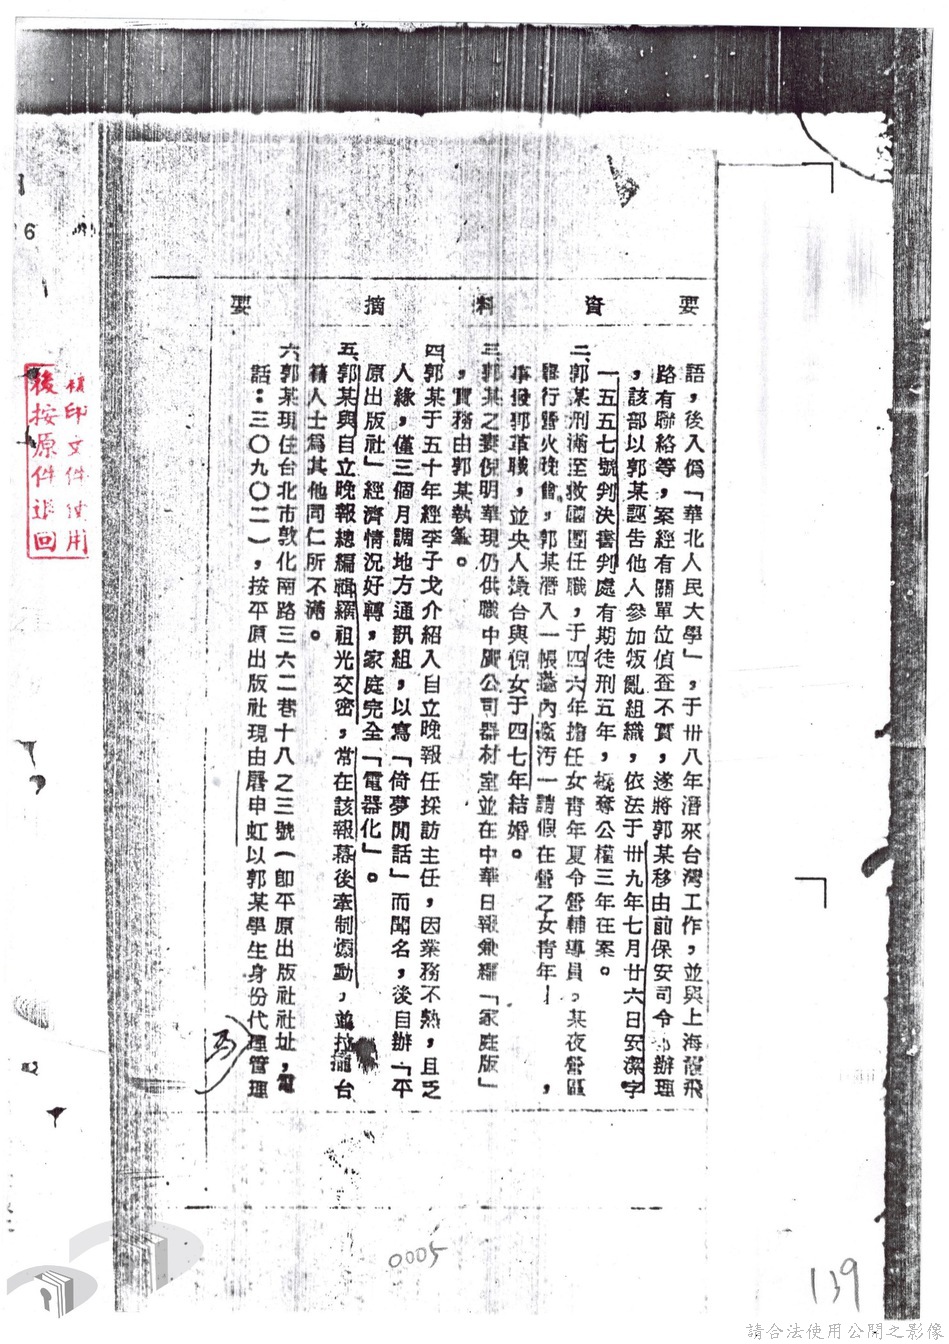 要資料摘要
語，後入僞「華北人民大學」，于卅八年潛來台灣工作，並與上海霞飛
路有聯絡等，案經有關單位偵查不實，遂將郭某移由前保安司令 辦理
，該部以郭某誣告他人參加叛亂組織，依法于卅九年七月廿六日安潔字
一五五七號判決書判處有期徒刑五年，褫奪公權三年在案。
二、郭某刑滿至救國團任職，于四六年擔任女青年夏令營輔導員，某夜營區
舉行營火晚會，郭某潛入一帳蓬內姦汚一請假在營之女青年，
事後郭革職，並央人 台與倪女于四七年結婚。
三、郭某之妻倪明華現仍供職中廣公司器材室並在中華日報兼編「家庭版」
，實務由郭某執筆。
四、郭某于五十年經李子戈介紹入自立晚報任採訪主任，因業務不熟，且乏
人緣，僅三個月調地方通訊組，以寫「倚夢閒話」而聞名，後自辦「平
原出版社」經濟情況好轉，家庭完全「電器化」。
五、郭某與自立晚報總編輯 祖光交密，常在該報幕後牽制煽動，並拉攏台
籍人士爲其他同仁所不滿。
六、郭某現住台北市敦化南路三六二巷十八之三號（卽平原出版社社址，電
話：三〇九〇二），按平原出版社現由 申虹以郭某學生身份代理管理
印文件使用
後按原件退回
6
0005
139
請合法使用公開之影像